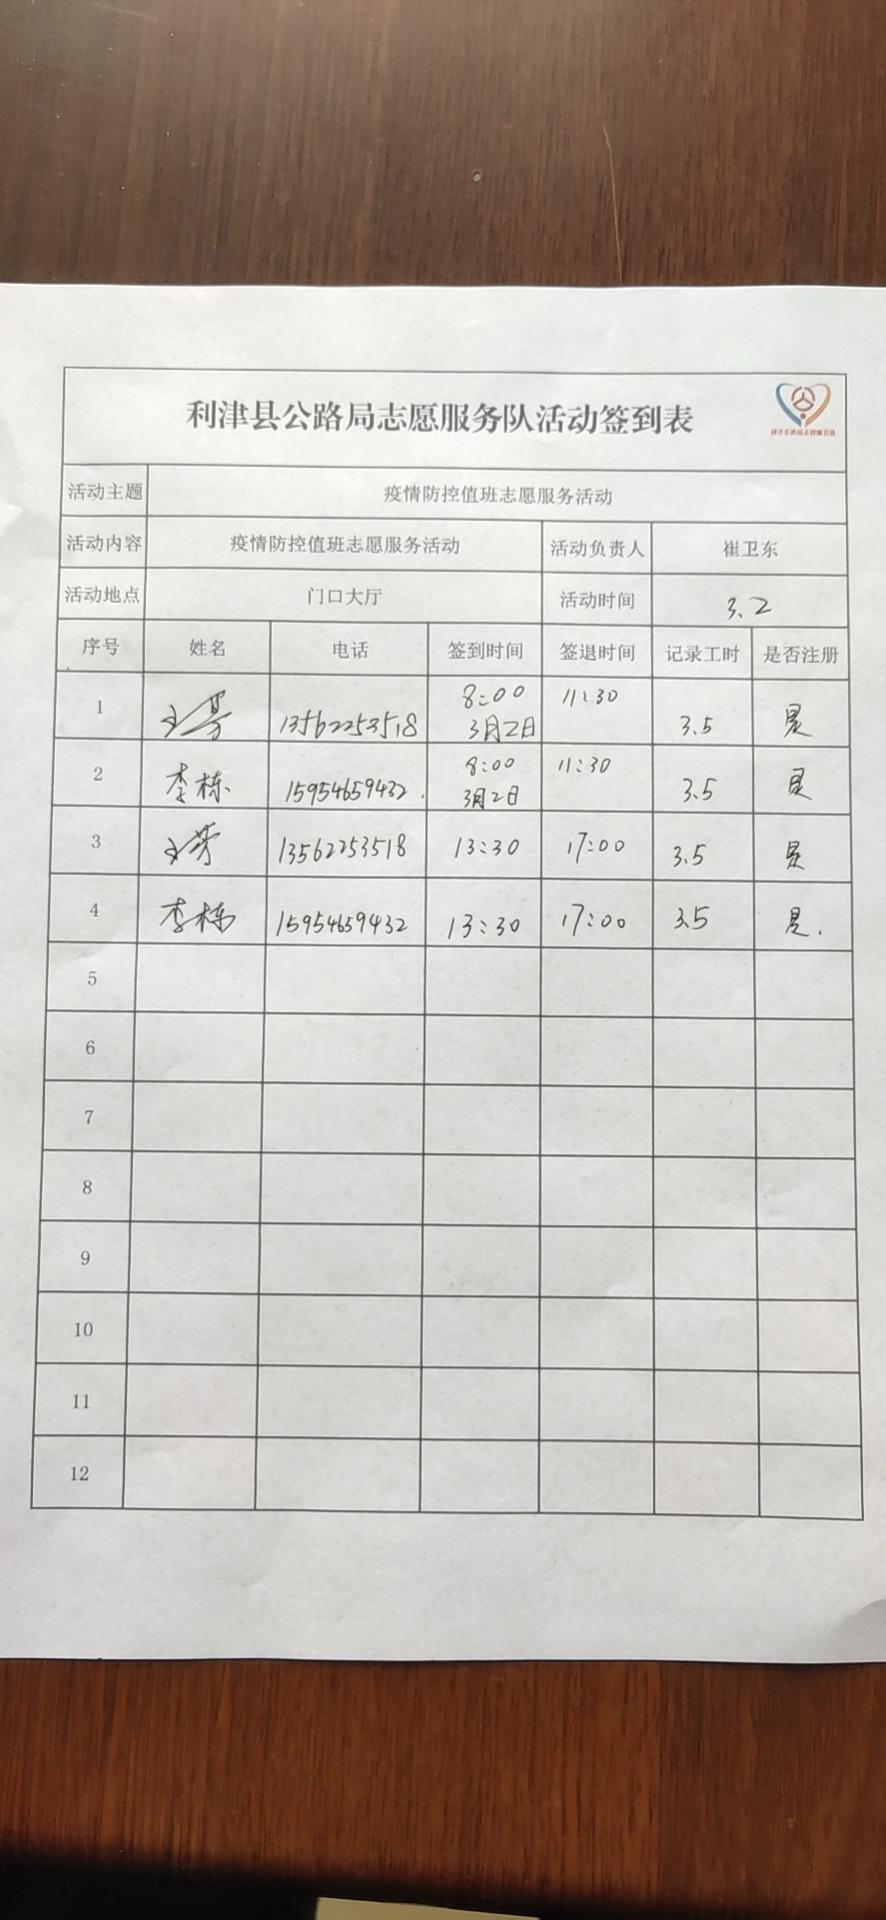 利津县公路局志愿服务队活动签到表
利津县公路局志愿服务队
活动主题 疫情防控值班志愿服务活动
活动内容 疫情防控值班志愿服务活动 活动负责人 崔卫东
活动地点 门口大厅 活动时间 3.2
序号 姓名 电话 签到时间 签退时间 记录工时 是否注册
1 王芳 13562253518 8:00 11:30 3.5 是
3月2日
2 李栋 15954659432 8:00 11:30 3.5 是
3月2日
3 王芳 13562253518 13:30 17:00 3.5 是
4 李栋 15954659432 13:30 17:00 3.5 是.
5
6
7
8
9
10
11
12